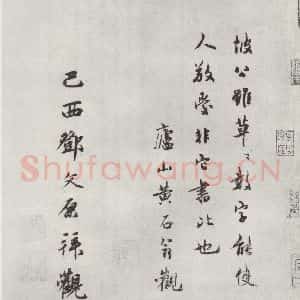 坡公雖草々數字能使
人敬愛非它書比也
廬山黃石翁觀
己酉鄧文原拜觀
Shufawang.CN